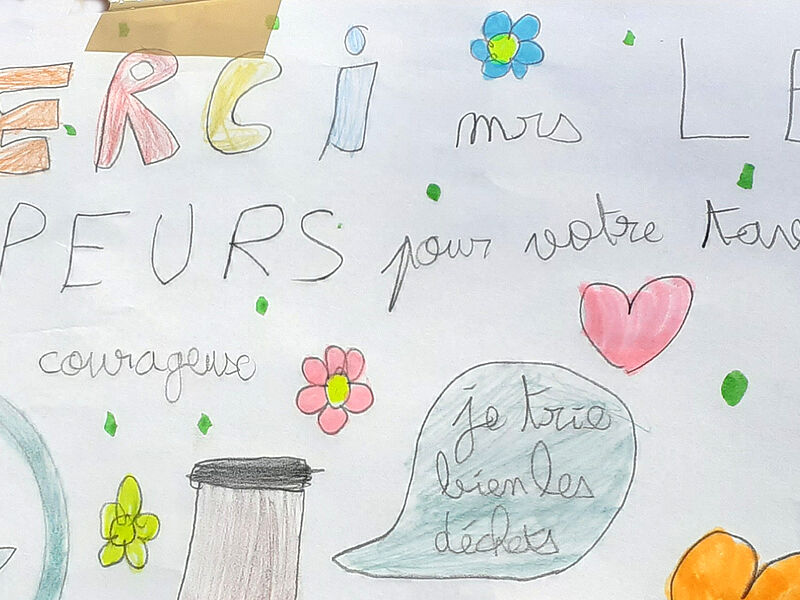 ERCi mrs LE
PEURS pour votre trav
courageuse
je trie
bien les
déchets